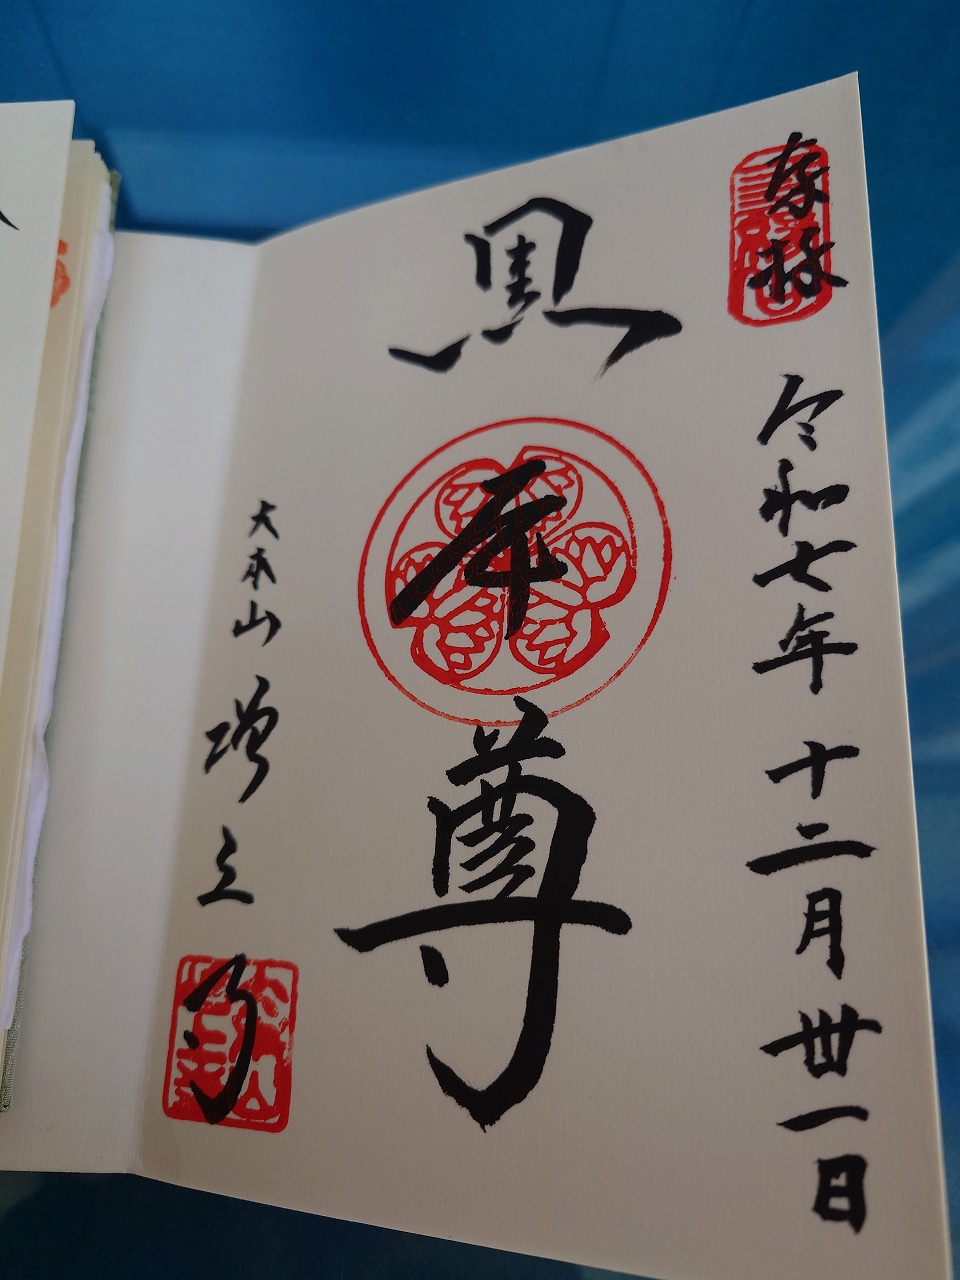 奉拝 令和七年 十二月卅一日
黒本尊
大本山 増上寺